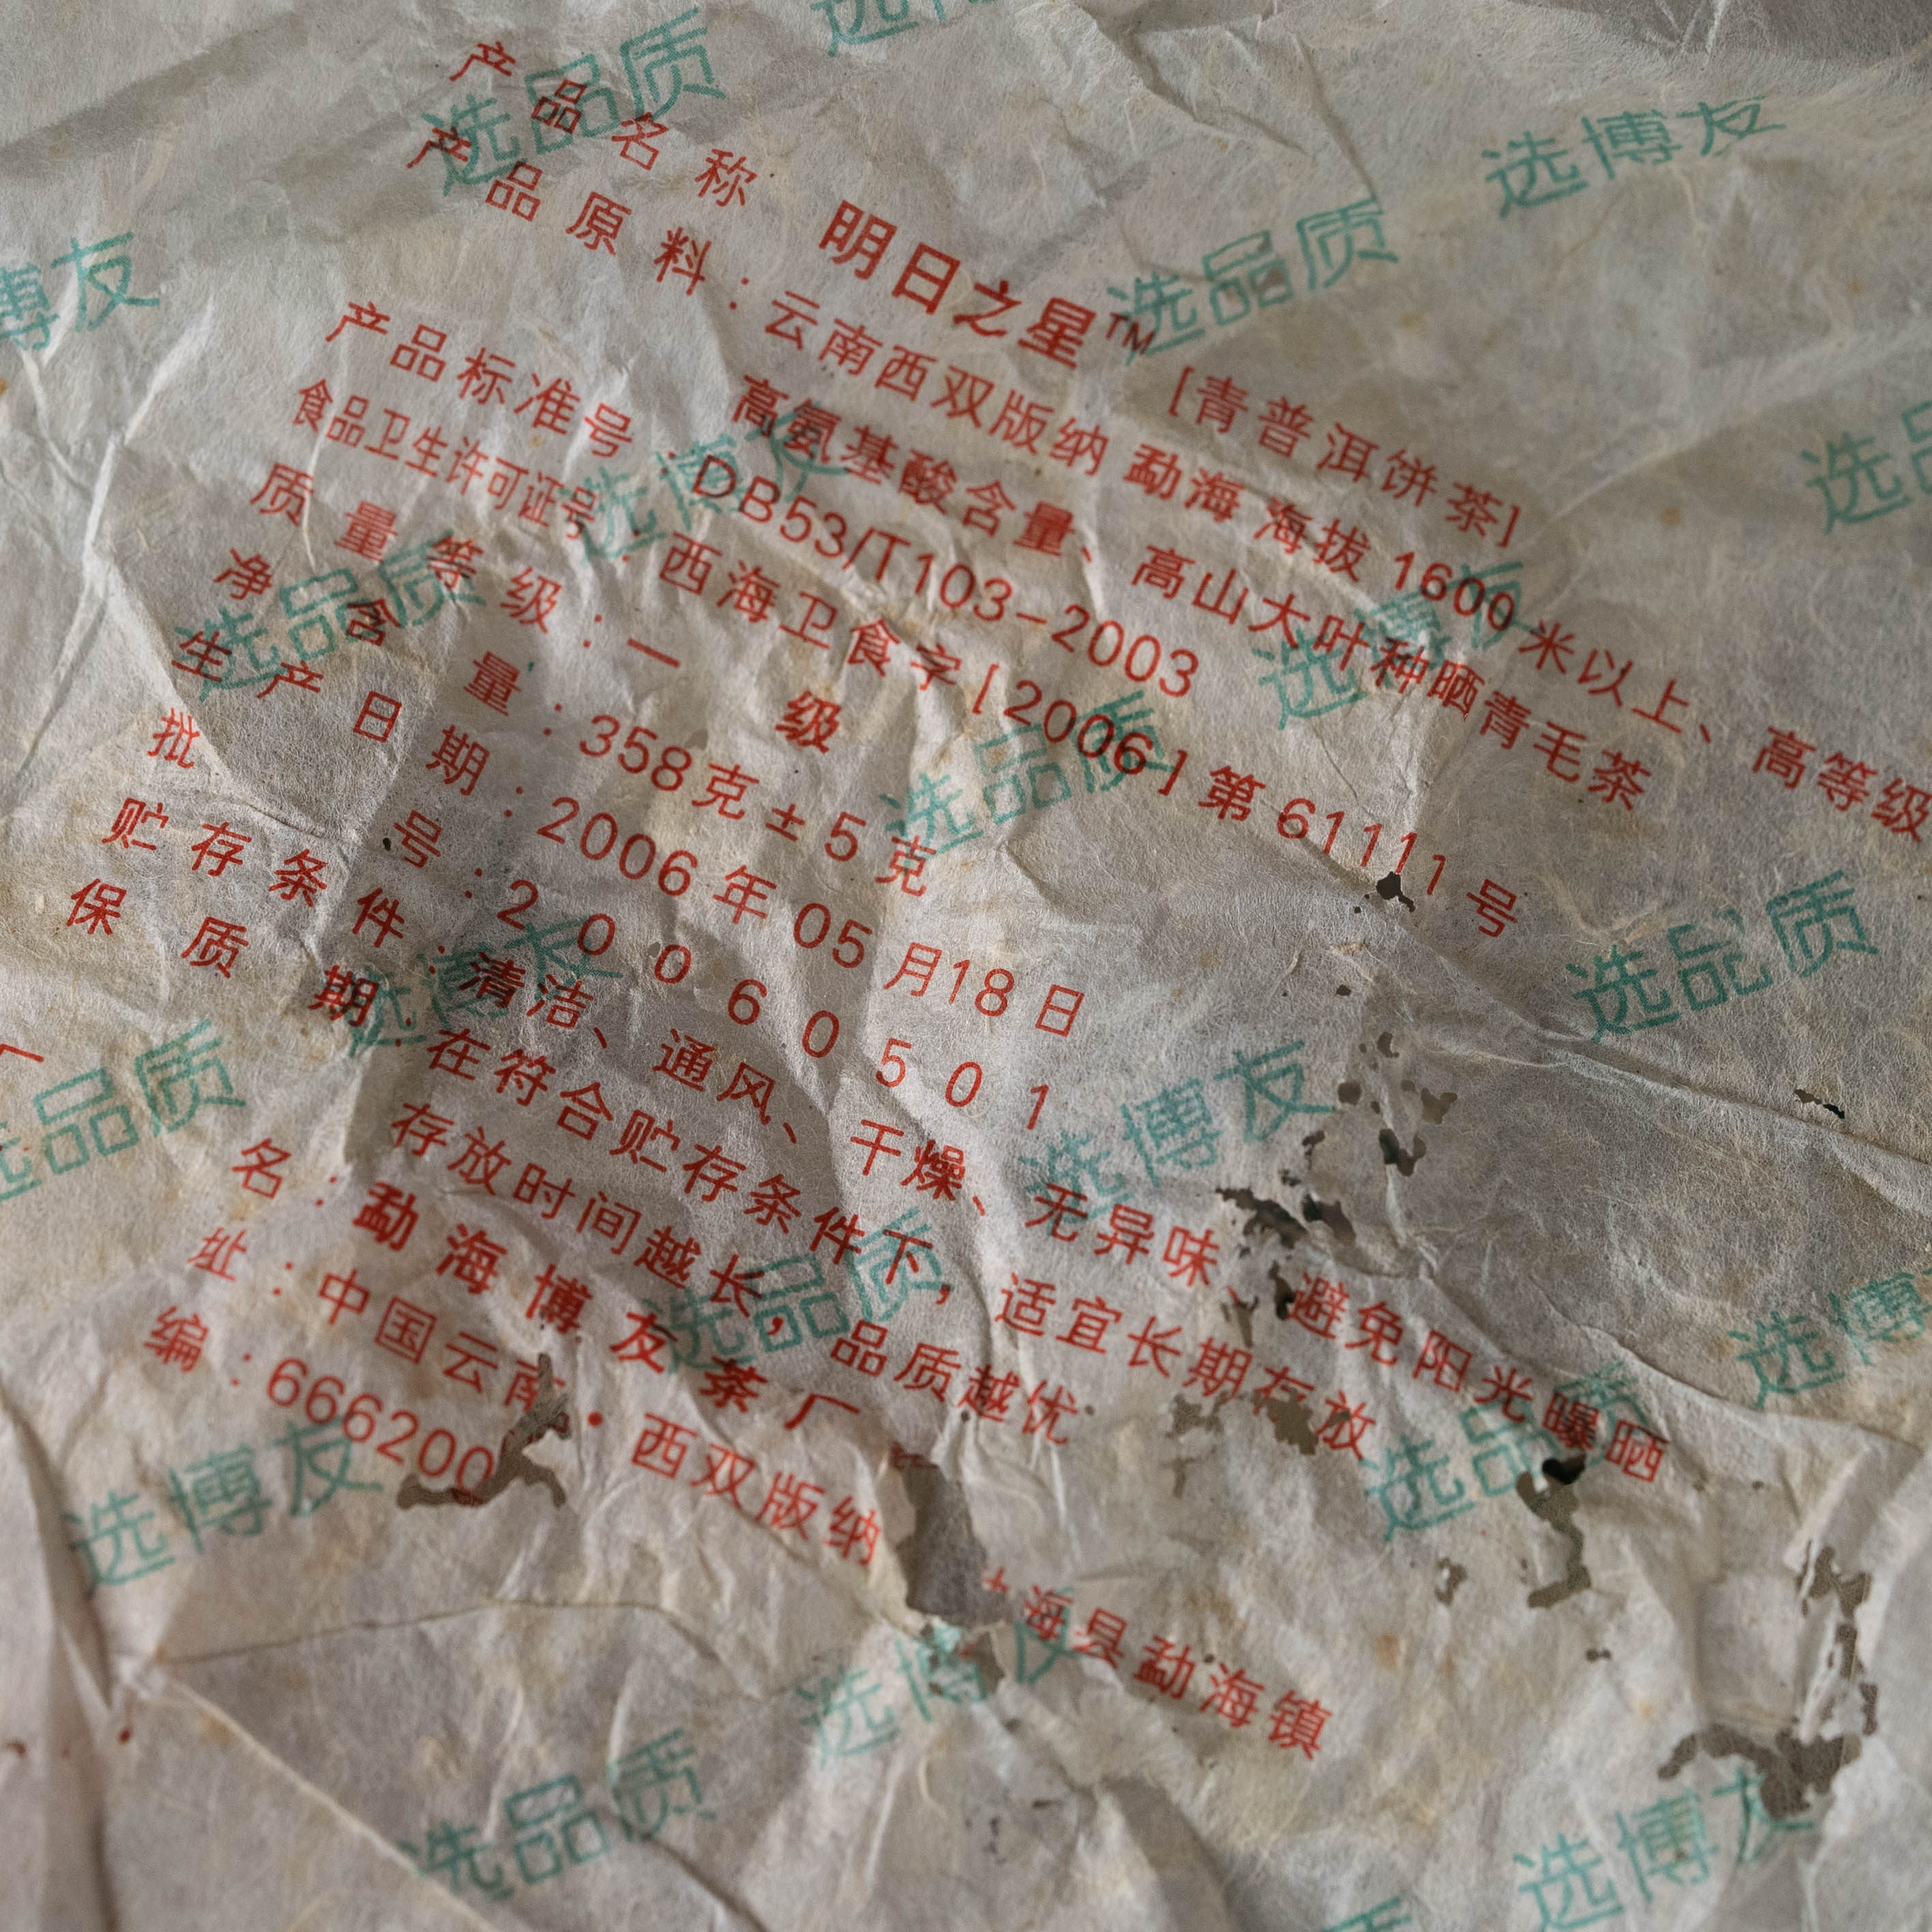 产品名称 明日之星™ [青普洱饼茶]
产品原料：云南西双版纳 勐海 海拔1600米以上、高等级
高氨基酸含量、高山大叶种晒青毛茶
产品标准号：DB53/T103-2003
食品卫生许可证号：西海卫食字[2006]第61111号
质量等级：一级
净含量：358克±5克
生产日期：2006年05月18日
批号：20060501
贮存条件：清洁、通风、干燥、无异味、避免阳光曝晒
保质期：在符合贮存条件下，适宜长期存放
存放时间越长，品质越优
名：勐海博友茶厂
址：中国云南·西双版纳 海县勐海镇
编：666200
选品质
选博友
选品质
博友
选品质
选博友
选博友
选品质
选品质
选品质
选博友
选博友
选品质
选博友
选品质
选品质
选博友
选博友
选品质
选博友